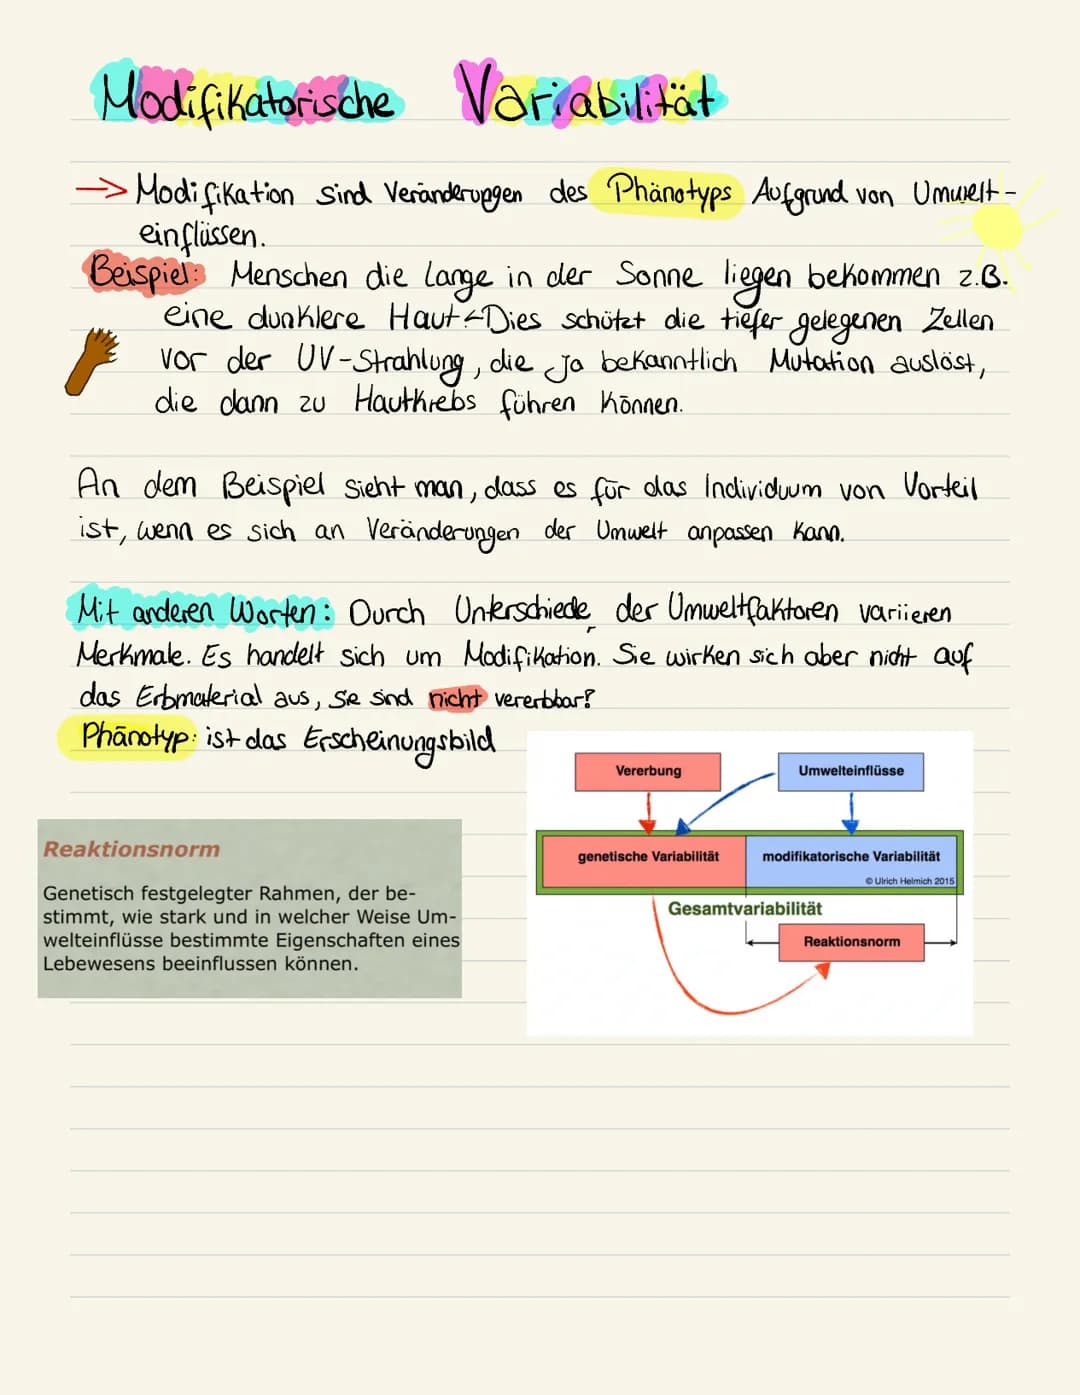 Modifikatorische Variabilität
-> Modifikation sind Veränderungen des Phänotyps Aufgrund von Umwelt-
einflüssen.
Beispiel: Menschen die lange in der Sonne liegen bekommen z.B.
eine dunklere Haut. Dies schützt die tiefer gelegenen Zellen
vor der UV-Strahlung, die Ja bekanntlich Mutation auslöst,
die dann zu Hautkrebs führen können.
An dem Beispiel sieht man, dass es für das Individuum von Vorteil
ist, wenn es sich an Veränderungen der Umwelt anpassen kann.
Mit anderen Worten: Durch Unterschiede der Umweltfaktoren variieren
Merkmale. Es handelt sich um Modifikation. Sie wirken sich aber nicht auf
das Erbmaterial aus, sie sind nicht vererbbar?
Phänotyp: ist das Erscheinungsbild
Vererbung
Umwelteinflüsse
genetische Variabilität
modifikatorische Variabilität
© Ulrich Helmich 2015
Gesamtvariabilität
Reaktionsnorm
Reaktionsnorm
Genetisch festgelegter Rahmen, der be-
stimmt, wie stark und in welcher Weise Um-
welteinflüsse bestimmte Eigenschaften eines
Lebewesens beeinflussen können.